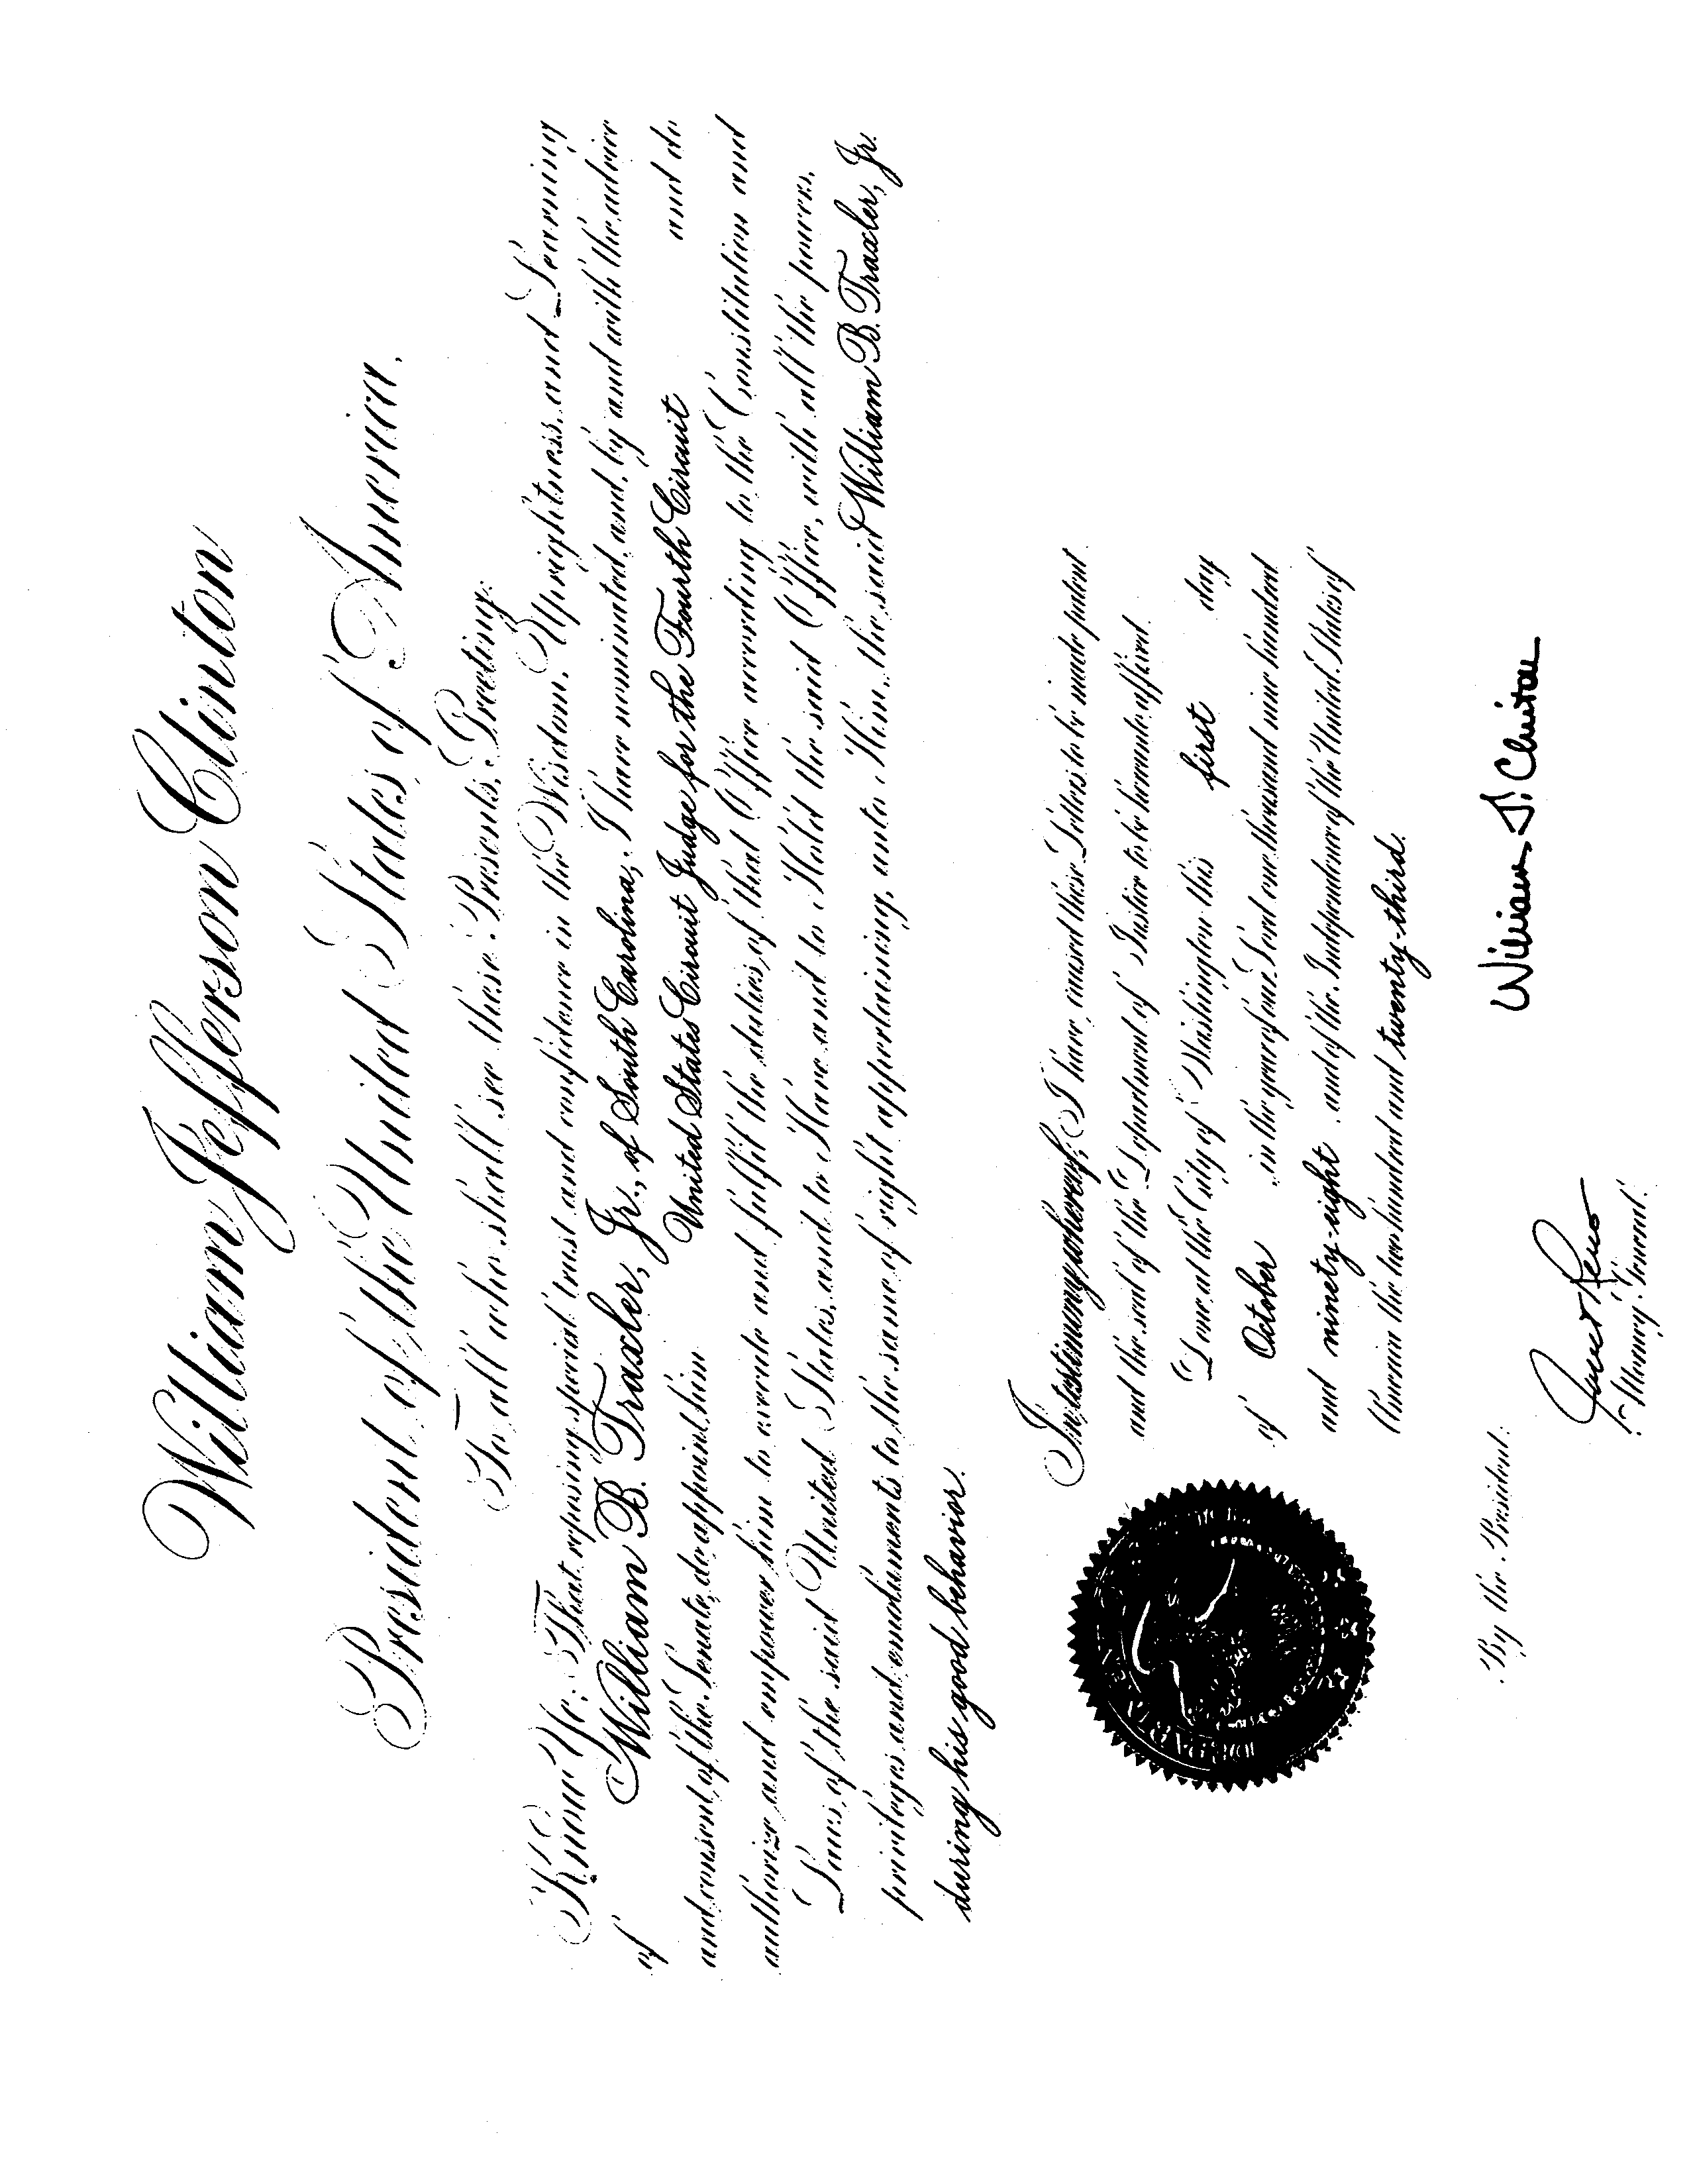 William Jefferson Clinton
President of the United States of America.
To all who shall see these Presents, Greeting:
Know Ye; That reposing special trust and confidence in the Wisdom, Uprightness, and Learning
of William B. Traxler, Jr., of South Carolina, I have nominated, and, by and with the advice
and consent of the Senate, do appoint him United States Circuit Judge for the Fourth Circuit and do
authorize and empower him to execute and fulfil the duties of that Office according to the Constitution and
Laws of the said United States, and to Have and to Hold the said Office, with all the powers,
privileges and emoluments to the same of right appertaining, unto Him, the said William B. Traxler, Jr.
during his good behavior.
In testimony whereof, I have caused these Letters to be made patent
and the seal of the Department of Justice to be hereunto affixed.
Done at the City of Washington this first day
of October in the year of our Lord one thousand nine hundred
and ninety-eight and of the Independence of the United States of
America the two hundred and twenty-third.
William J. Clinton
By the President:
Janet Reno
Attorney General.